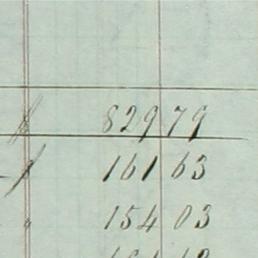 829 79
161 63
154 03